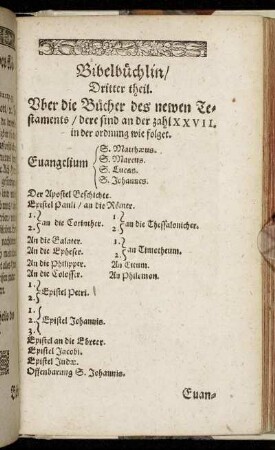 Bibelbüchlin/
Dritter theil.
Vber die Bücher des newen Te-
staments / dere sind an der zahl XXVII.
in der ordnung wie folget.
S. Matthæus.
S. Marcus.
Euangelium
S. Lucas.
S. Johannes.
Der Apostel Geschichte.
Epistel Pauli / an die Römer.
1. 2. an die Corinther. 1. 2. an die Thessalonicher.
An die Galater.
An die Epheser. 1. 2. an Timotheum.
An die Philipper. An Titum.
An die Colosser. An Philemon.
1. 2. Epistel Petri.
1. 2. 3. Epistel Johannis.
Epistel an die Ebreer.
Epistel Jacobi.
Epistel Judæ.
Offenbarung S. Johannis.
Euan-